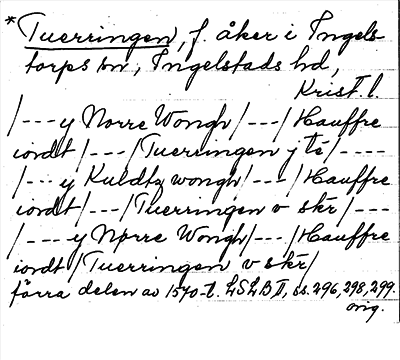 *Tuerringen, f. åker i Ingels
torps sn, Ingelstads hd,
Krist. l.
/---y Nørre Wongh/---/Hauffre
iordt/---/Tuerringen j té/----
/---y Kuldtz wongh/---/Hauffre
iordt/---/Tuerringen v skr/---
/---y Nørre Wongh/---/Hauffre
iordt/Tuerringen v skr/
förra delen av 1570-t. LSLB II, ss. 296, 298, 299.
orig.